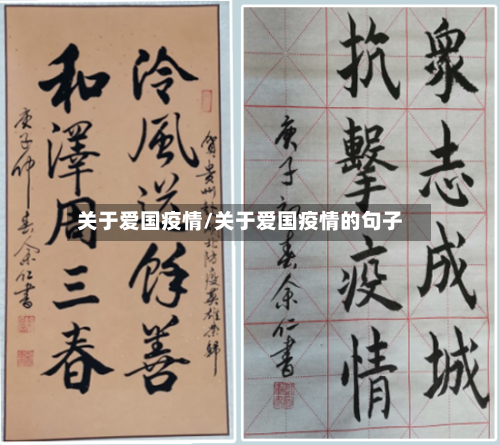 贺贵州北防疫英雄荣歸
泠風送餘善
和澤周三春
庚子仲春余仁書
衆志成城
抗擊疫情
庚子初春余仁書
关于爱国疫情/关于爱国疫情的句子